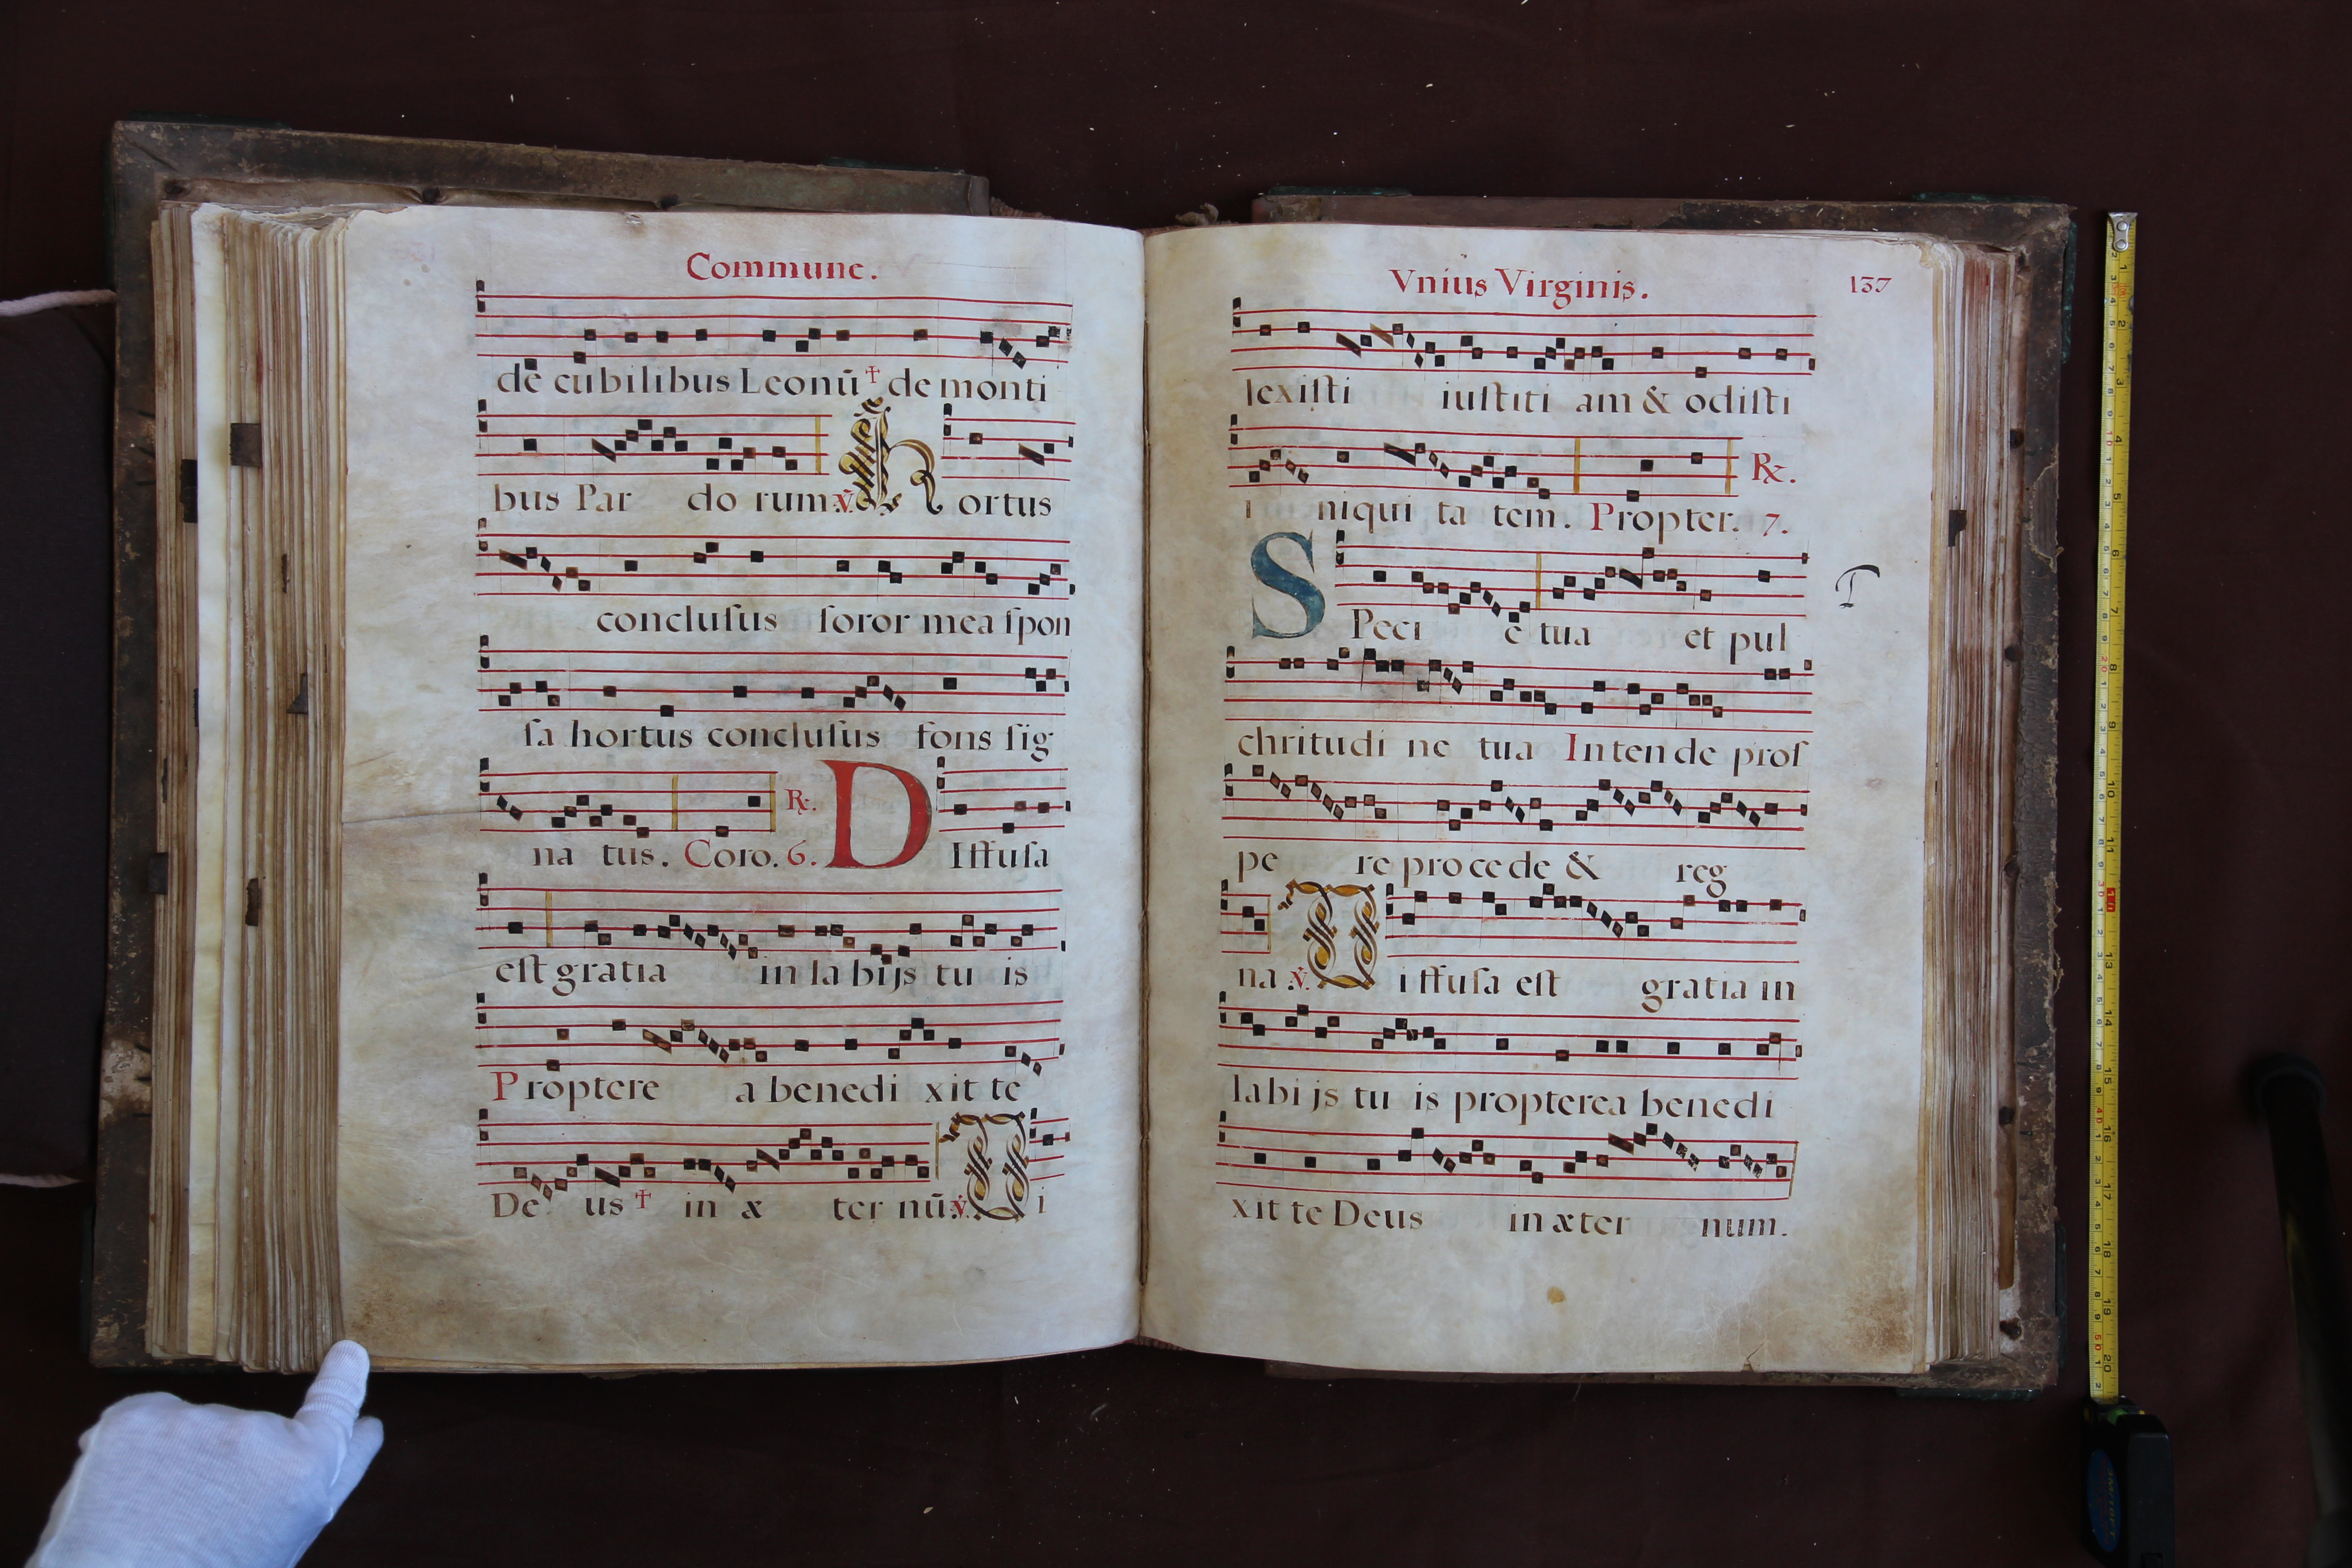 Commune.
de cubilibus Leonū † de monti
bus Par do rum ℣. Hortus
conclusus soror mea spon
sa hortus conclusus fons sig
na tus. Coro. 6. ℟. DIffusa
est gratia in la bijs tu is
Proptere a benedi xit te
De us † in æ ter nū ℣. Di
Vnius Virginis. 137
lexisti iustiti am & odisti
i niqui ta tem. Propter. 7. ℟.
SPeci e tua et pul
chritudi ne tua Intende pros
pe re procede & reg
na ℣. Diffusa est gratia in
labi js tu is propterea benedi
xit te Deus in æter num.